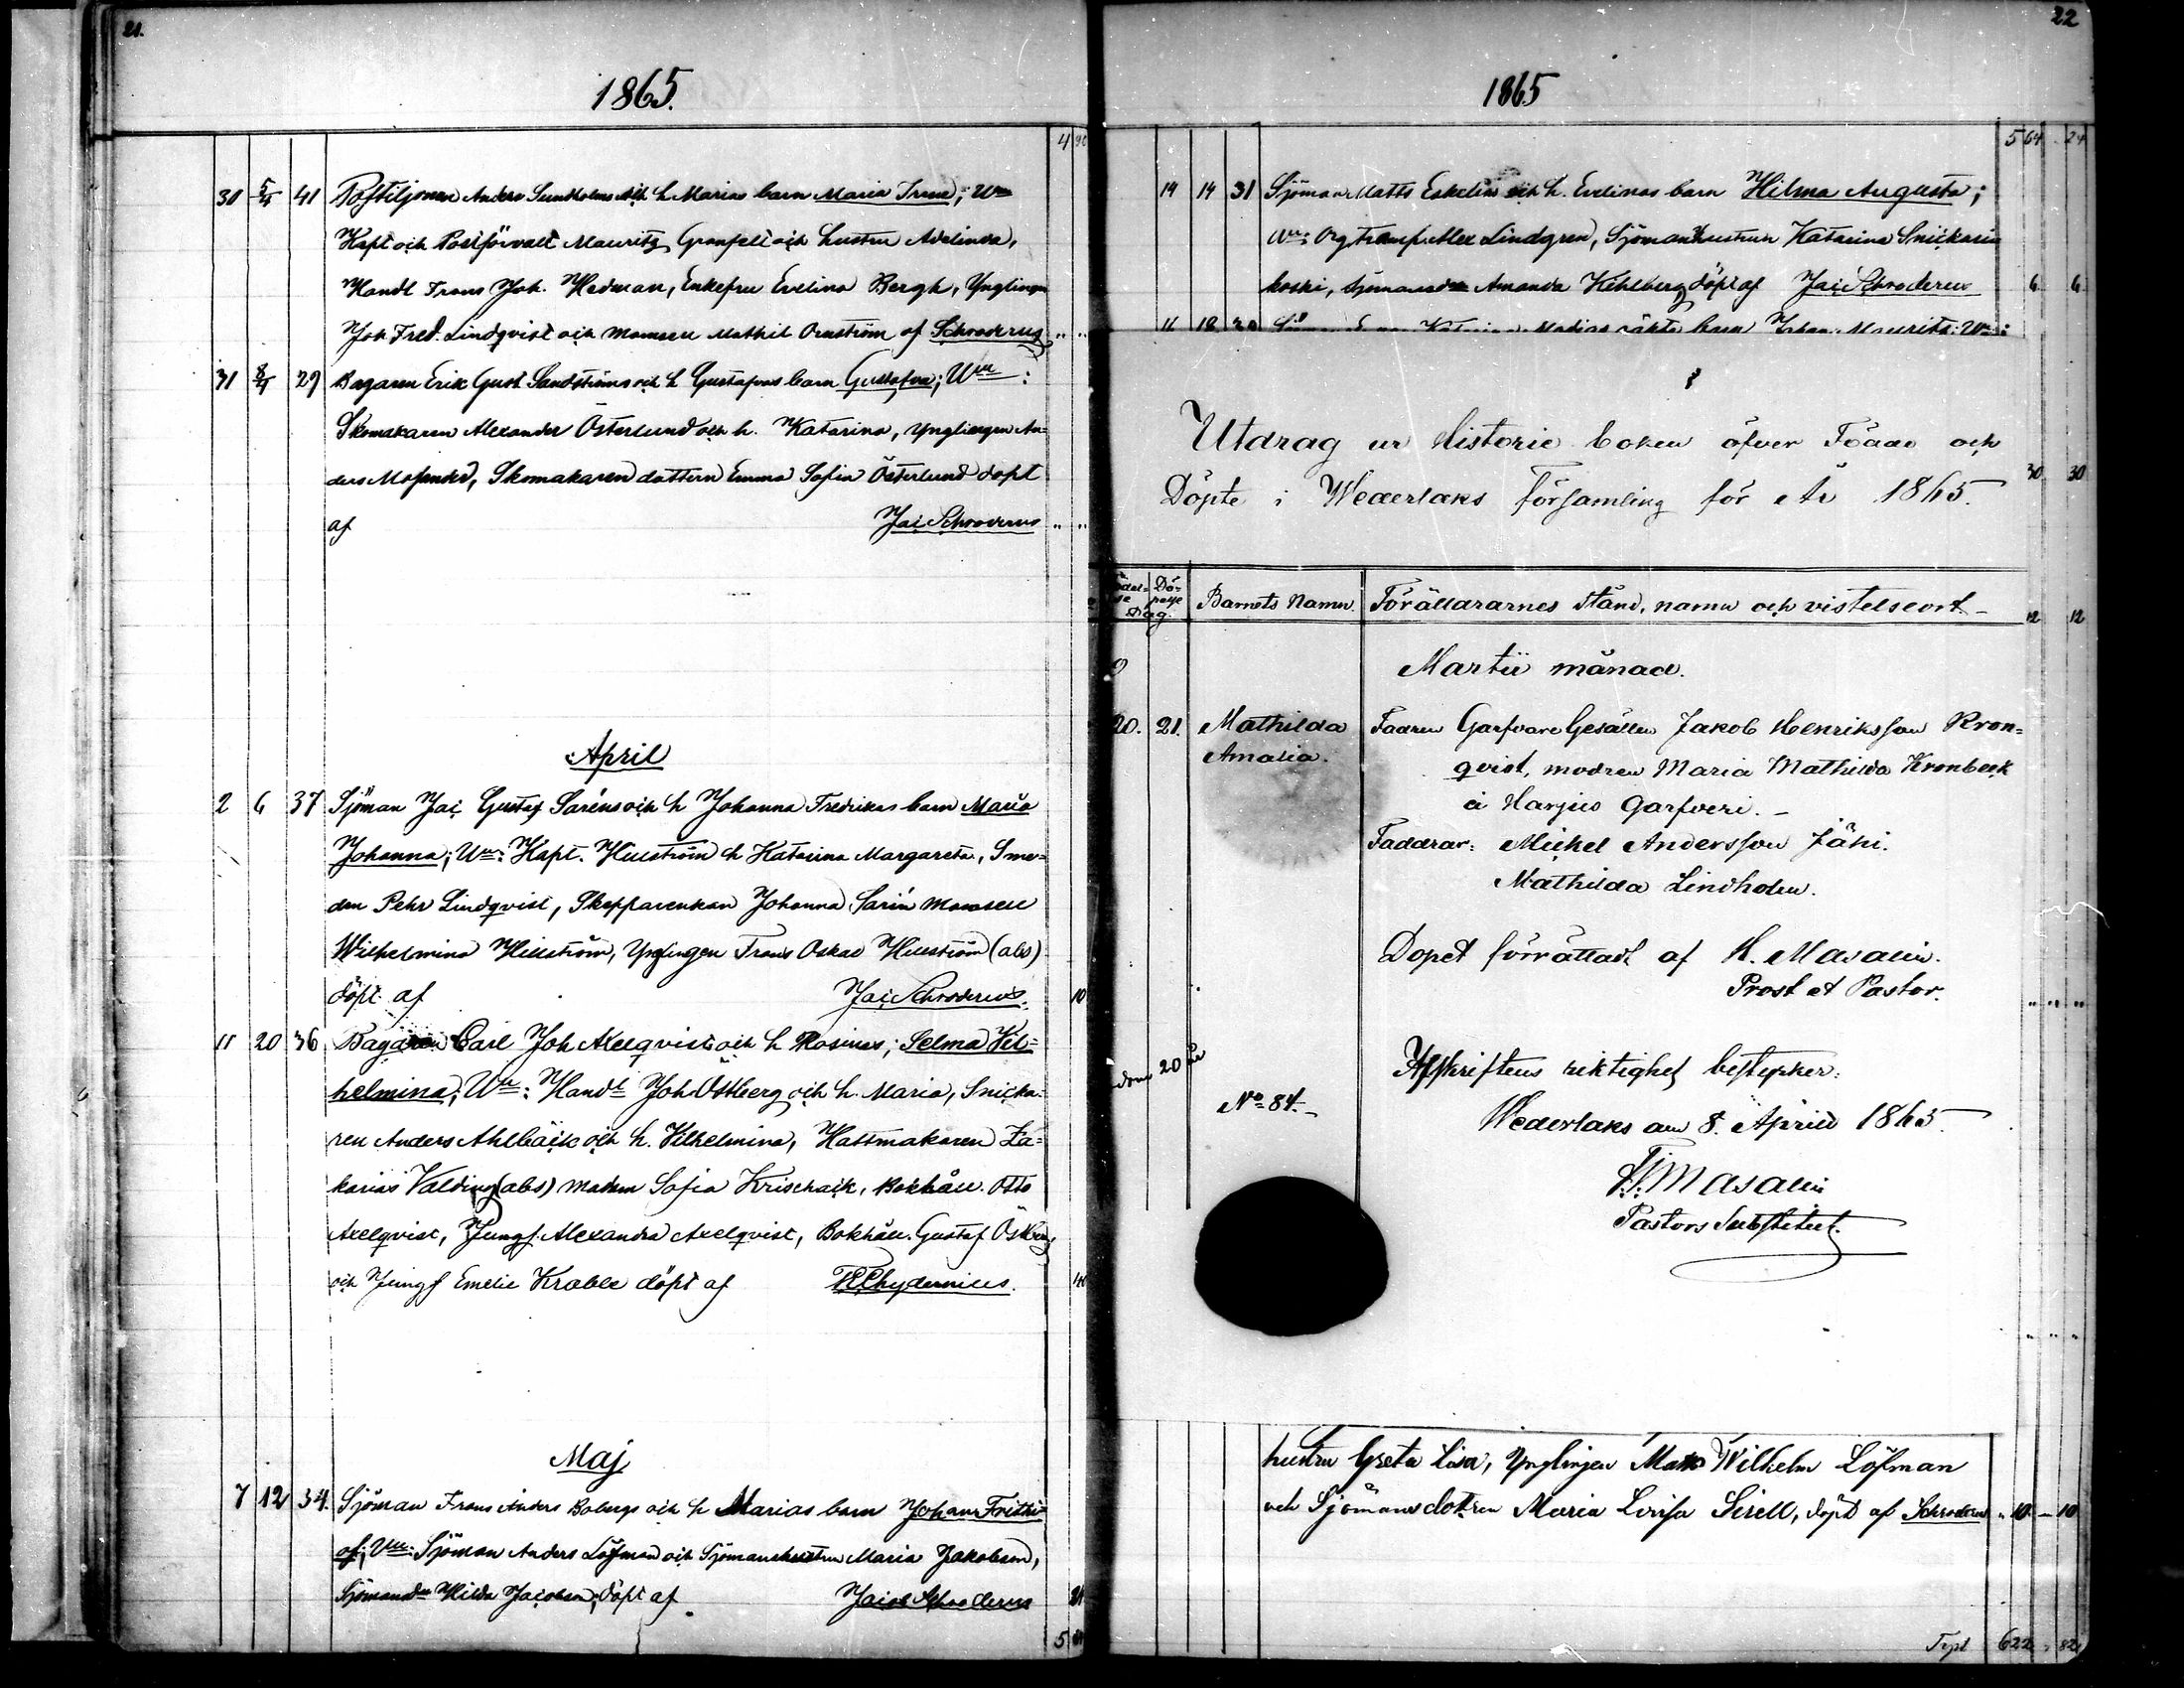 21.
1865.
4 90
30 5/4 41 Postiljonen Anders Sundholms och h Marias barn Maria Irene; Wn
Kapt och Postförvalt Mauritz Granfelt och hustru Adelinda,
Handl Frans Joh. Hedman, Enkefru Evelina Bergh, Ynglingen
Joh Fred. Lindqvist och Mamsell Mathil Ornström af Schroderus
31 8/4 29 Bagaren Erik Gust Sandströms och h Gustafvas barn Gustafva; Wne:
Skomakaren Alexander Österlund och h. Katarina, Ynglingen An=
ders Mosander, Skomakaren dottern Emma Sofia Österlund döpt
af Jac Schroderus
April
2 6 37 Sjöman Jac Gustaf Saréns och h Johanna Fredrikas barn Maria
Johanna; Wne: Kapt. Hellström h Katarina Margareta, Sme=
den Pehr Lindqvist, Skepparenkan Johanna Sarin Mamsell
Wilhelmina Hellström, Ynglingen Frans Oskar Hellström (abs)
döpt af Jac Schroderus. 10
11 20 36 Bagaren Carl Joh Axelqvist och h Rosinas; Selma Vil=
helmina; Wne: Handl Joh Östberg och h. Maria, Snicka=
ren Anders Ahlbäck och h. Vilhelmina, Hattmakaren Za=
karias Valding (abs) Madam Sofia Krischack, Bokhåll. Otto
Axelqvist, Jungf. Alexandra Axelqvist, Bokhåll. Gustaf Östberg
och Jungf Emelie Krable döpt af Chydenius.
Maj
7 12 34. Sjöman Frans Anders Bobergs och h Marias barn Johan Frithi=
of; Vne: Sjöman Anders Löfman och Sjömanshustrun Maria Jakobson,
Sjömansdr Hilda Jacobson, döpt af Jacob Schroderus
22
1865
5 64 24
14 14 31 Sjöman Matts Eskelins och h. Evelinas barn Hilma Augusta;
Wne: Orgtramp. Alex Lindgren, Sjömanhustrun Katarina Snickari
koski, Sjömansdr Amanda Kihlberg, döpt af Jac Schroderus 6 6
11 18 barn Johan Mauritz; Wne:
Utdrag ur Historie boken öfver Födde och
Döpte i Wederlaks församling för år 1865.
30 30
Födel=se Dö=pelse Dag. Barnets Namn. Förälldrarnes stånd, namn och vistelseort.
12 12
Martii månad.
20. 21. Mathilda Fadren Garfvare Gesällen Jakob Henriksson Kron=
Amalia. qvist, modren Maria Mathilda Kronbeck
å Harjus Garfveri.
Faddrar: Mickel Andersson Jähi.
Mathilda Lindholm.
Dopet förrättadt af H. Masalin.
Prost et Pastor.
20 år
Afskriftens riktighet bestyrker:
No 84.
Wederlaks den 8. April 1865.
Masalin
Pastors Substitut.
hustru Greta Lisa, Ynglingen Matts Wilhelm Löfman
och Sjömansdottren Maria Lovisa Sirell, döpt af Schroderus 10 10
622 82